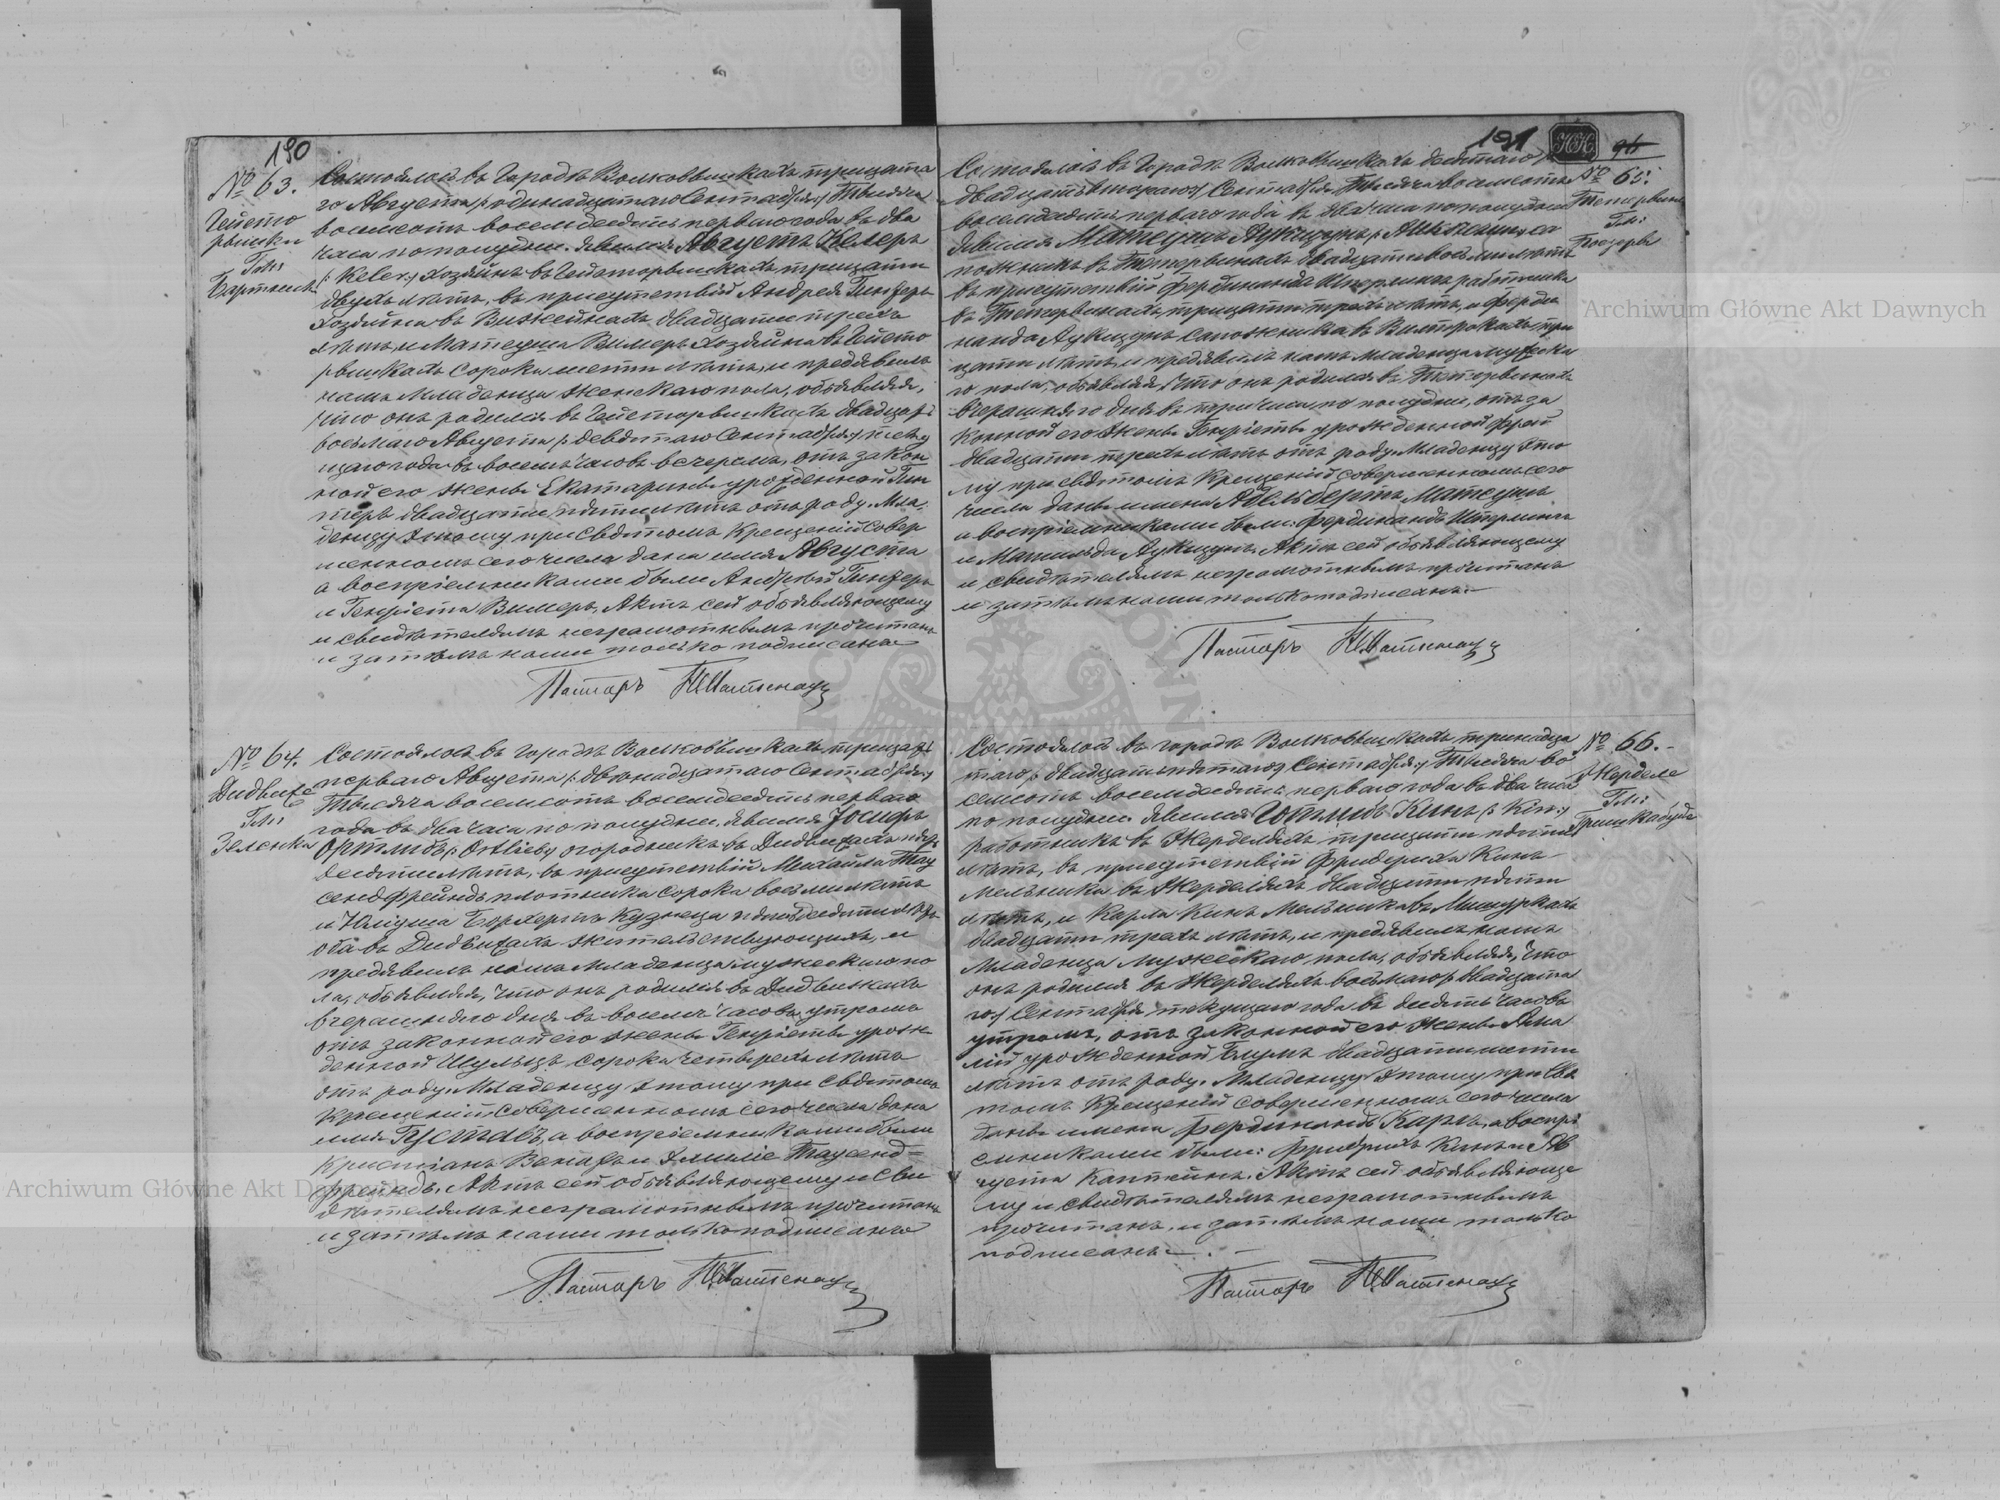 190
№ 63.
Гейсто
ришки
Гм:
Состоялось въ Городѣ Волковышкахъ тридцата
го Августа /: одинадцатаго Сентября :/ Тысяча
восемьсотъ восемьдесятъ перваго года въ два
часа по полудни. Явился Августъ Келеръ
/: Keler :/ хозяинъ въ тридцати
двухъ лѣтъ, въ присутствіи Андрея Гинтеръ
хозяина въ двадцати трехъ
лѣтъ, и Матеуша Вимеръ хозяина въ Гейсто
ришкахъ сорока шести лѣтъ, и предъявилъ
намъ младенца женскаго пола, объявляя,
что онъ родился въ Гейсторишкахъ двадцать
восьмаго Августа /: девятаго Сентября :/ теку
щаго года въ восемь часовъ вечеромъ, отъ закон
ной его жены Екатарины урожденной Гин
теръ двадцати пяти лѣтъ отъ роду. Мла
денцу этому при Святомъ Крещеніи совер
шенномъ сего числа дана имя Августа
а воспріемниками были Андрей Гинтеръ
и Генріета Вимеръ. Актъ сей объявляющему
и свидѣтелямъ неграмотнымъ прочитанъ
и затѣмъ нами только подписанъ
Пасторъ
№ 64.
Гм:
Зеленка
Состоялось въ городѣ Волковышкахъ тридцать
перваго Августа /: двѣнадцатаго Сентября :/
Тысяча восемьсотъ восемьдесятъ перваго
года въ два часа по полудни. Явился Іосифъ
Ортлибъ /: Ortlieb :/ огородникъ въ пяти
десяти лѣтъ, въ присутствіи Михайла Тау
сендфрейндъ плотника сорока восьми лѣтъ
и Юліуша Борхертъ кузнеца пятидесяти лѣтъ
оба въ жительствующихъ, и
предъявилъ намъ младенца мужескаго по
ла, объявляя, что онъ родился въ
вчерашняго дня въ восемь часовъ утромъ
отъ законной его жены Генріеты урож
денной Шульцъ сорока четырехъ лѣтъ
отъ роду. Младенцу этому при Святомъ
Крещеніи совершенномъ сего числа дана
имя Густавъ, а воспріемниками были
Христіанъ и Эмиліе Таусенд=
фрейндъ. Актъ сей объявляющему и сви
дѣтелямъ неграмотнымъ прочитанъ
и затѣмъ нами только подписанъ
Пасторъ
191
96
№ 65.
Гм:
Состоялось въ Городѣ Волковышкахъ десятаго /:
двадцать втораго :/ Сентября Тысяча восемьсотъ
восемьдесятъ перваго года въ два часа по полудни
Явился Матеушъ са
пожникъ въ двадцати восьми лѣтъ
въ присутствіи Фердинанда работника
въ тридцати трехъ лѣтъ, и Ферди
нанда сапожника въ три
цати лѣтъ, и предъявилъ намъ младенца мужеска
го пола, объявляя, что онъ родился въ
вчерашняго дня въ три часа по полудни, отъ за
конной его жены Генріеты урожденной
двадцати трехъ лѣтъ отъ роду. Младенцу это
му при святомъ Крещеніи совершенномъ сего
числа даны имена Адельбертъ Матеушъ
а воспріемниками были: Фердинандъ
и Матильда Актъ сей объявляющему
и свидѣтелямъ неграмотнымъ прочитанъ
и затѣмъ нами только подписанъ.
Пасторъ
№ 66.
Жерделе
Гм:
Состоялось въ городѣ Волковышкахъ тринадца
таго /: двадцать пятаго :/ Сентября Тысяча во
семьсотъ восемьдесятъ перваго года въ два часа
по полудни. Явился Готлибъ Кинъ /: Kin :/
работникъ въ Жерделяхъ тридцати пяти
лѣтъ, въ присутствіи Фридриха Кинъ
мельника въ Жерделяхъ двадцати пяти
лѣтъ, и Карла Кинъ мельника въ
двадцати трехъ лѣтъ, и предъявилъ намъ
младенца мужескаго пола, объявляя, что
онъ родился въ Жерделяхъ восьмаго /: двадцата
го :/ Сентября текущаго года въ десять часовъ
утромъ, отъ законной его жены Ама
ліи урожденной Блумъ двадцати шести
лѣтъ отъ роду. Младенцу этому при Свя
томъ Крещеніи совершенномъ сего числа
даны имена Фердинандъ Карлъ, а воспрі
емниками были: Фридрихъ Кинъ и Ав
густа Актъ сей объявляюще
му и свидѣтелямъ неграмотнымъ
прочитанъ, и затѣмъ нами только
подписанъ.
Пасторъ
Archiwum Główne Akt Dawnych
Archiwum Główne Akt Dawnych